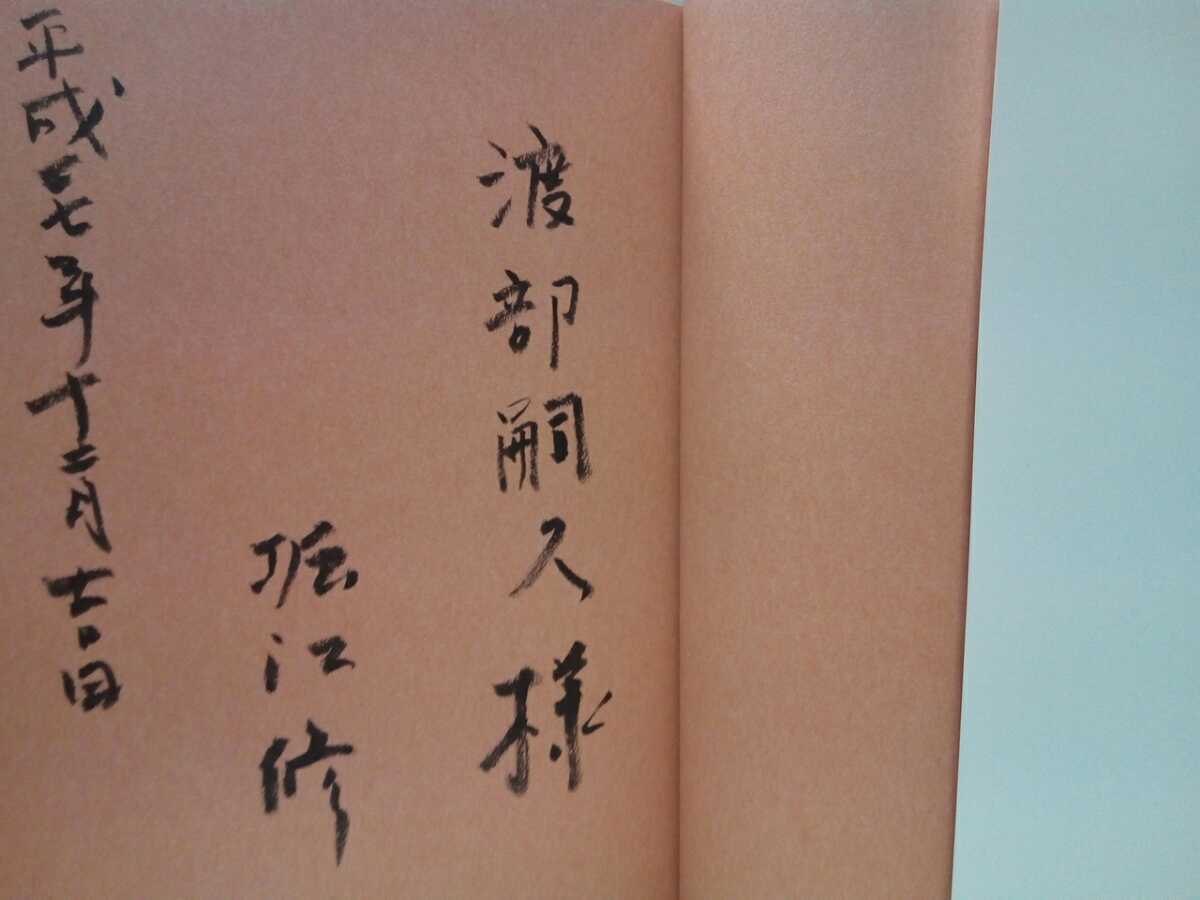 渡部嗣久様
堀江修
平成二七年十二月吉日